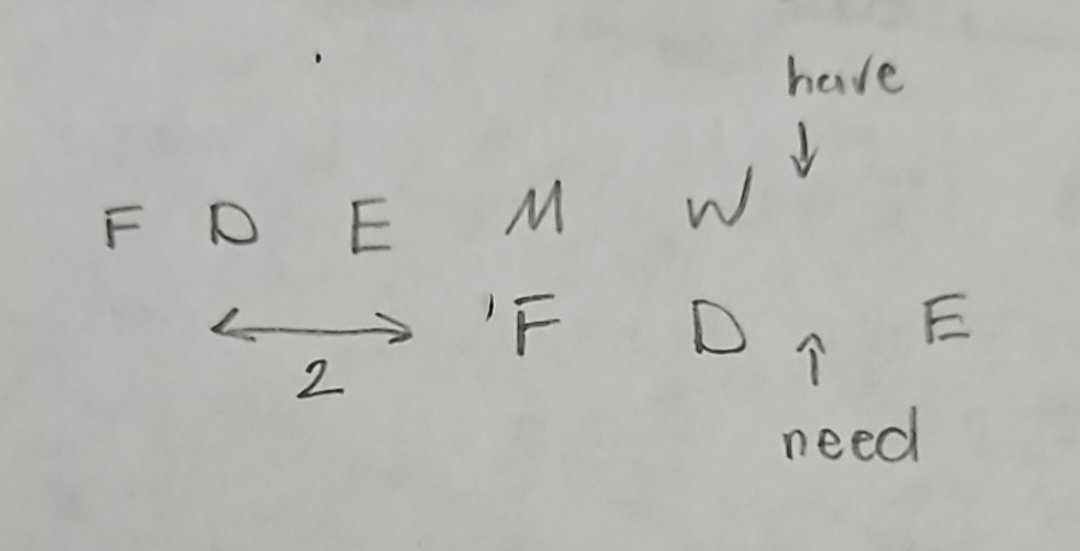 have
↓
F D E M W
'F D ↑ E
2
need